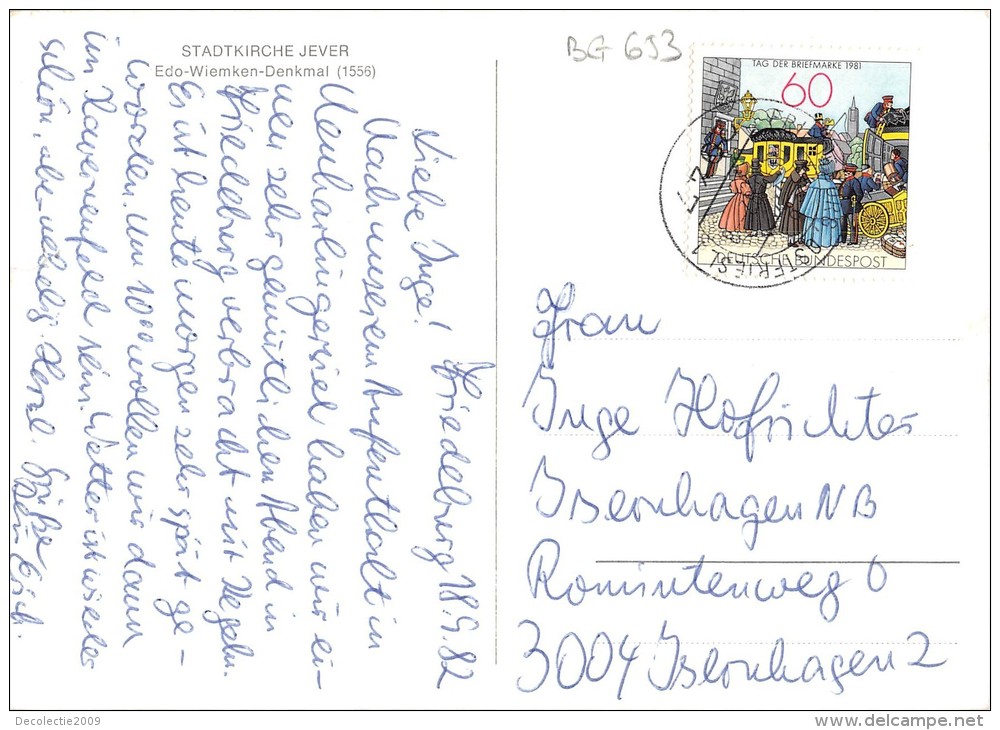 STADTKIRCHE JEVER
Edo-Wiemken-Denkmal (1556)
BG 693
TAG DER BRIEFMARKE 1981
60
DEUTSCHE BUNDESPOST
Friedeburg 18.9.82
Liebe Inge!
Nach unserem Aufenthalt in
Neuharlingersiel haben wir ei-
nen sehr gemütlichen Abend in
Friedeburg verbracht mit Kegeln.
Es ist heute morgen sehr spät ge-
worden. Um 10⁰⁰ wollen wir dann
im Kavernenfeld sein. Wetter ist wieder
schön, aber neblig. Herzl. Grüße
Dein Erich.
Frau
Inge Hofrichter
Isernhagen NB
Romintenweg 0
3004 Isernhagen 2
Decolectie2009
delcampe.net